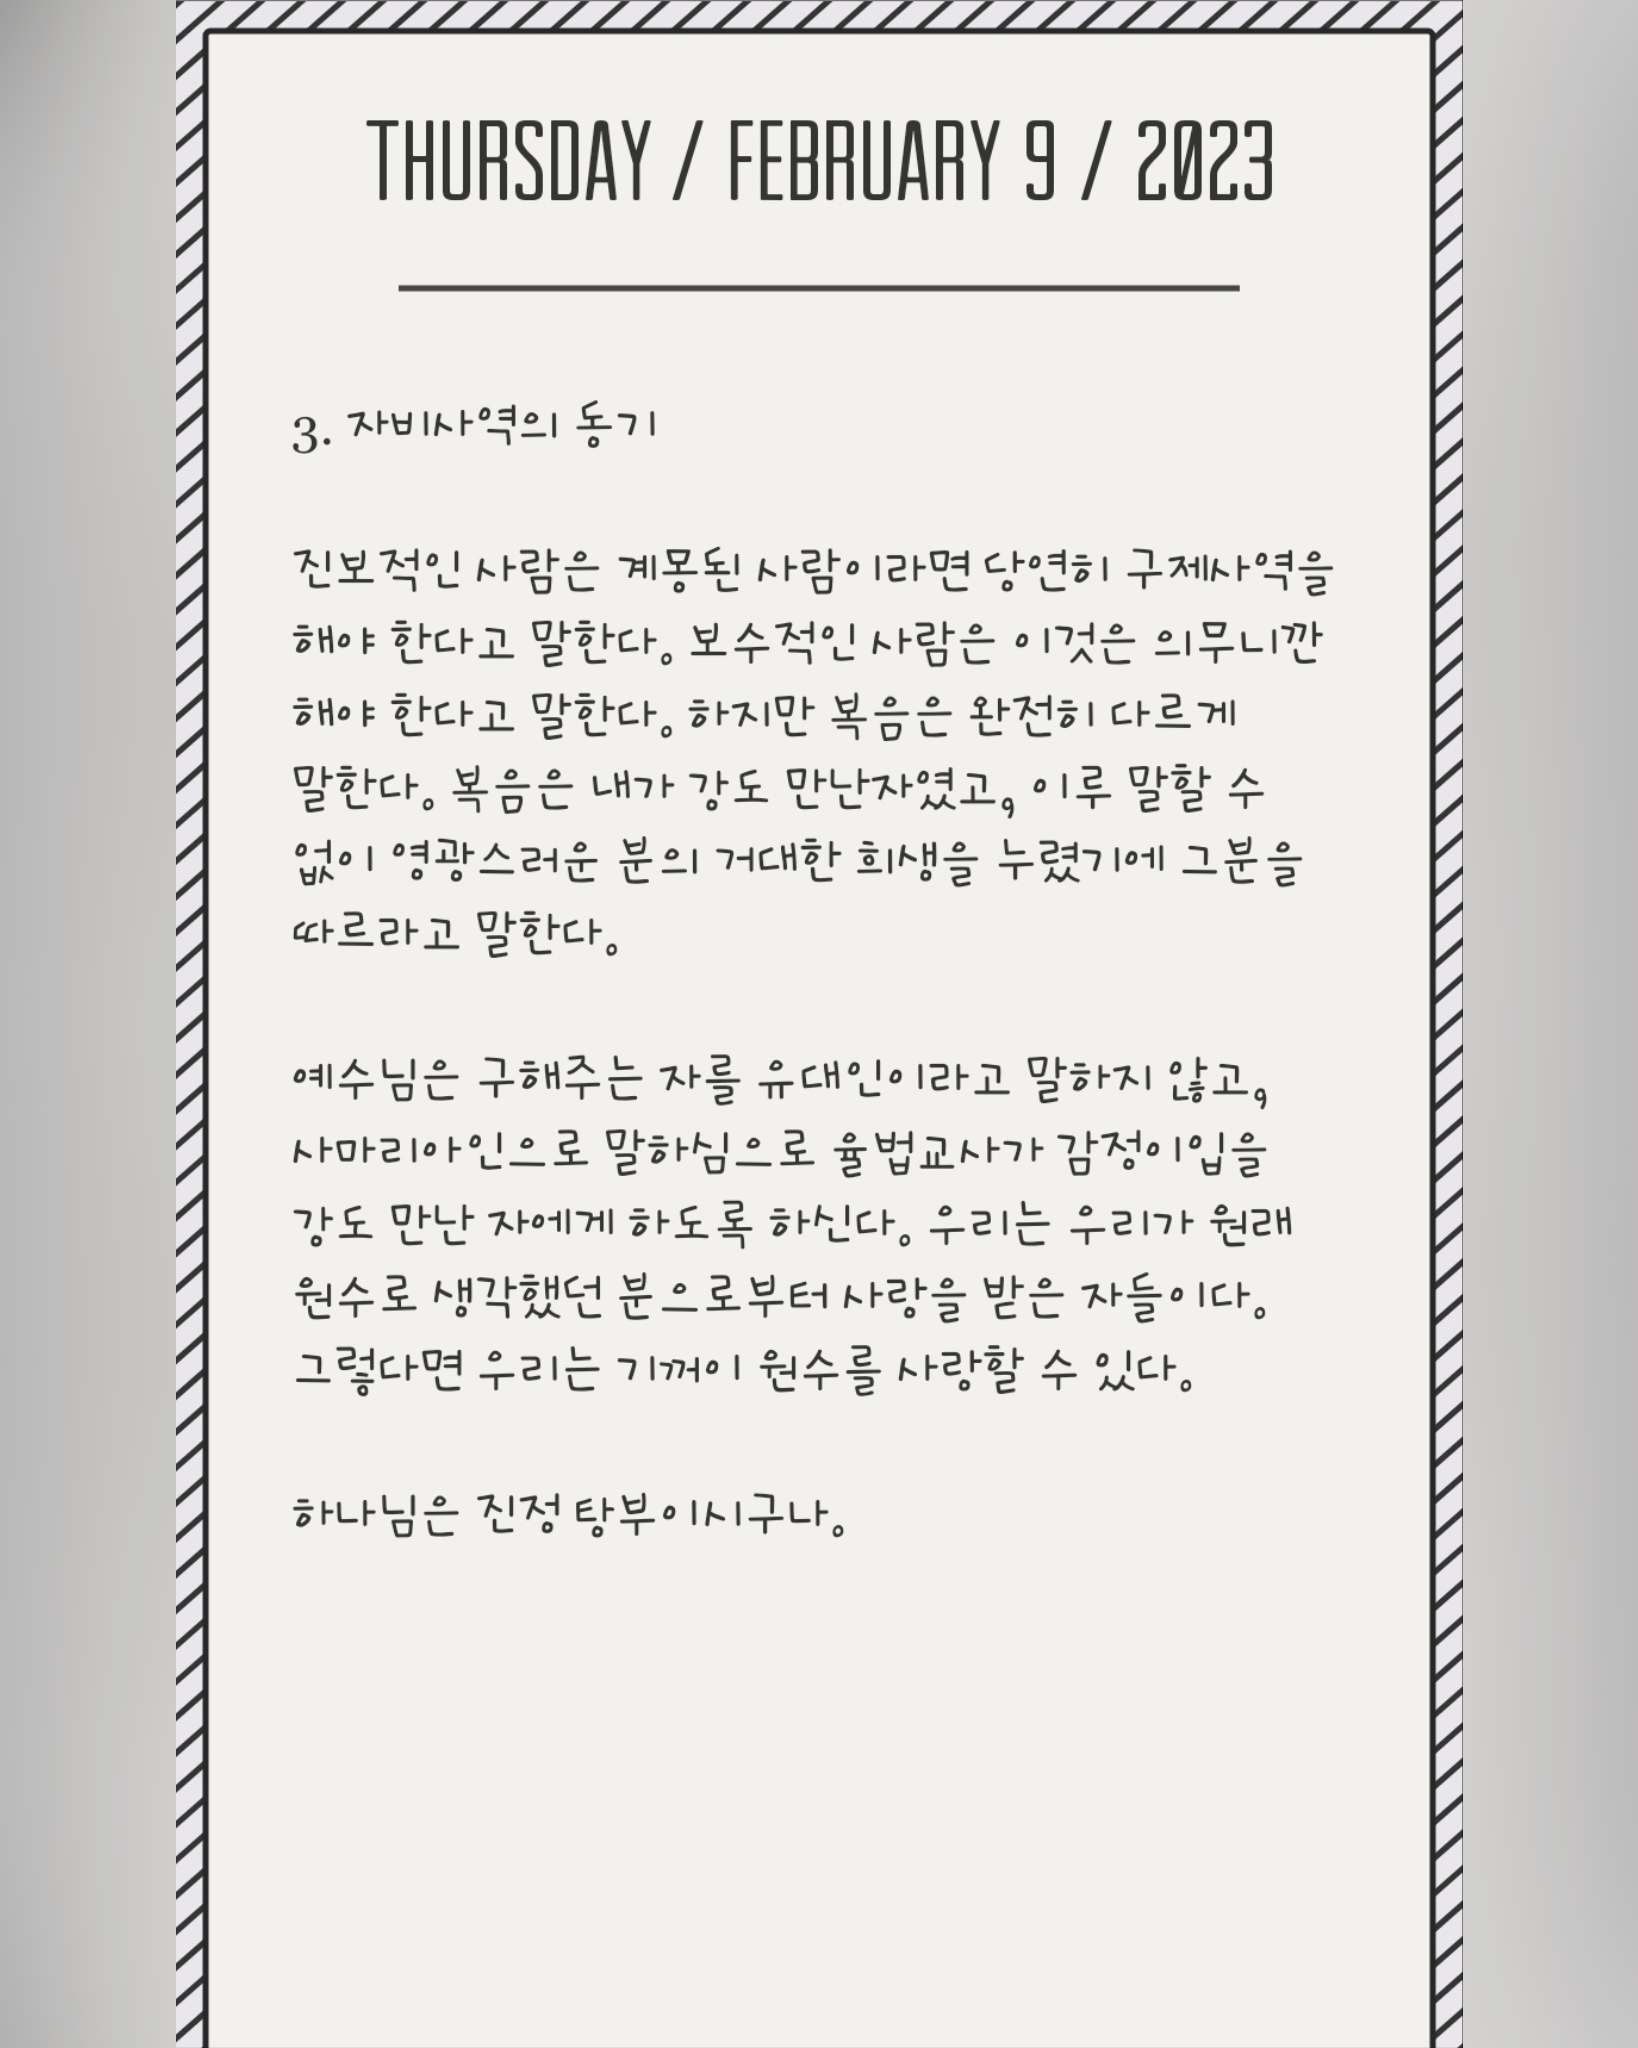 THURSDAY / FEBRUARY 9 / 2023
3. 자비사역의 동기
진보적인 사람은 계몽된 사람이라면 당연히 구제사역을
해야 한다고 말한다. 보수적인 사람은 이것은 의무니깐
해야 한다고 말한다. 하지만 복음은 완전히 다르게
말한다. 복음은 내가 강도 만난자였고, 이루 말할 수
없이 영광스러운 분의 거대한 희생을 누렸기에 그분을
따르라고 말한다.
예수님은 구해주는 자를 유대인이라고 말하지 않고,
사마리아인으로 말하심으로 율법교사가 감정이입을
강도 만난 자에게 하도록 하신다. 우리는 우리가 원래
원수로 생각했던 분으로부터 사랑을 받은 자들이다.
그렇다면 우리는 기꺼이 원수를 사랑할 수 있다.
하나님은 진정 탕부이시구나.